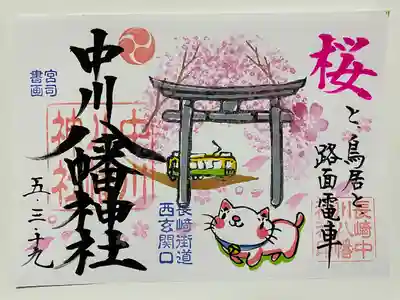 桜
と、鳥居と
路面電車
長崎街道
西玄関口
宮司
書画
中川八幡神社
五・三・二九
中川
八幡
神社
長崎中
川八幡